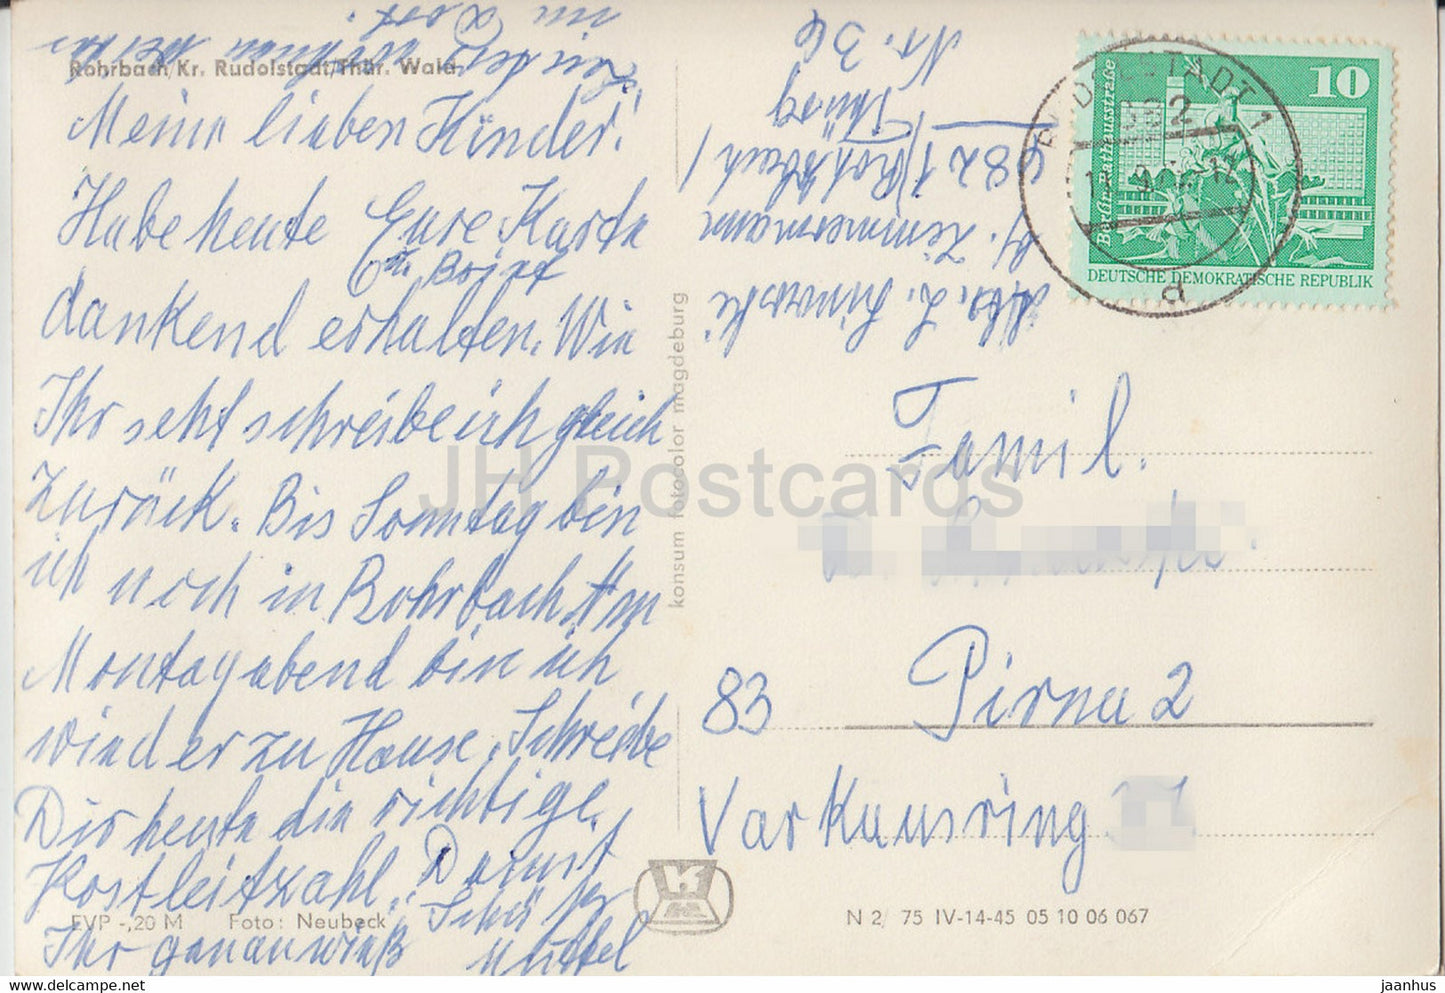 Rohrbach/Kr. Rudolstadt/Thür. Wald
Meine lieben Kinder!
Habe heute Eure Karte
u. Brief
dankend erhalten. Wie
Ihr seht schreibe ich gleich
zurück. Bis Sonntag bin
ich noch in Rohrbach Am
Montagabend bin ich
wieder zu Hause. Schreibe
Dir heute die richtige
Postleitzahl. Damit
Ihr genau wißt
EVP -,20 M Foto: Neubeck
konsum fotocolor magdeburg
Abs. L.
H. Zimmermann
6821 Rohrbach /
Thürg
Nr. 36
10
DEUTSCHE DEMOKRATISCHE REPUBLIK
a
Famil.
83 Pirna 2
Varkausring
N 2/ 75 IV-14-45 05 10 06 067
JH Postcards
jaanhus